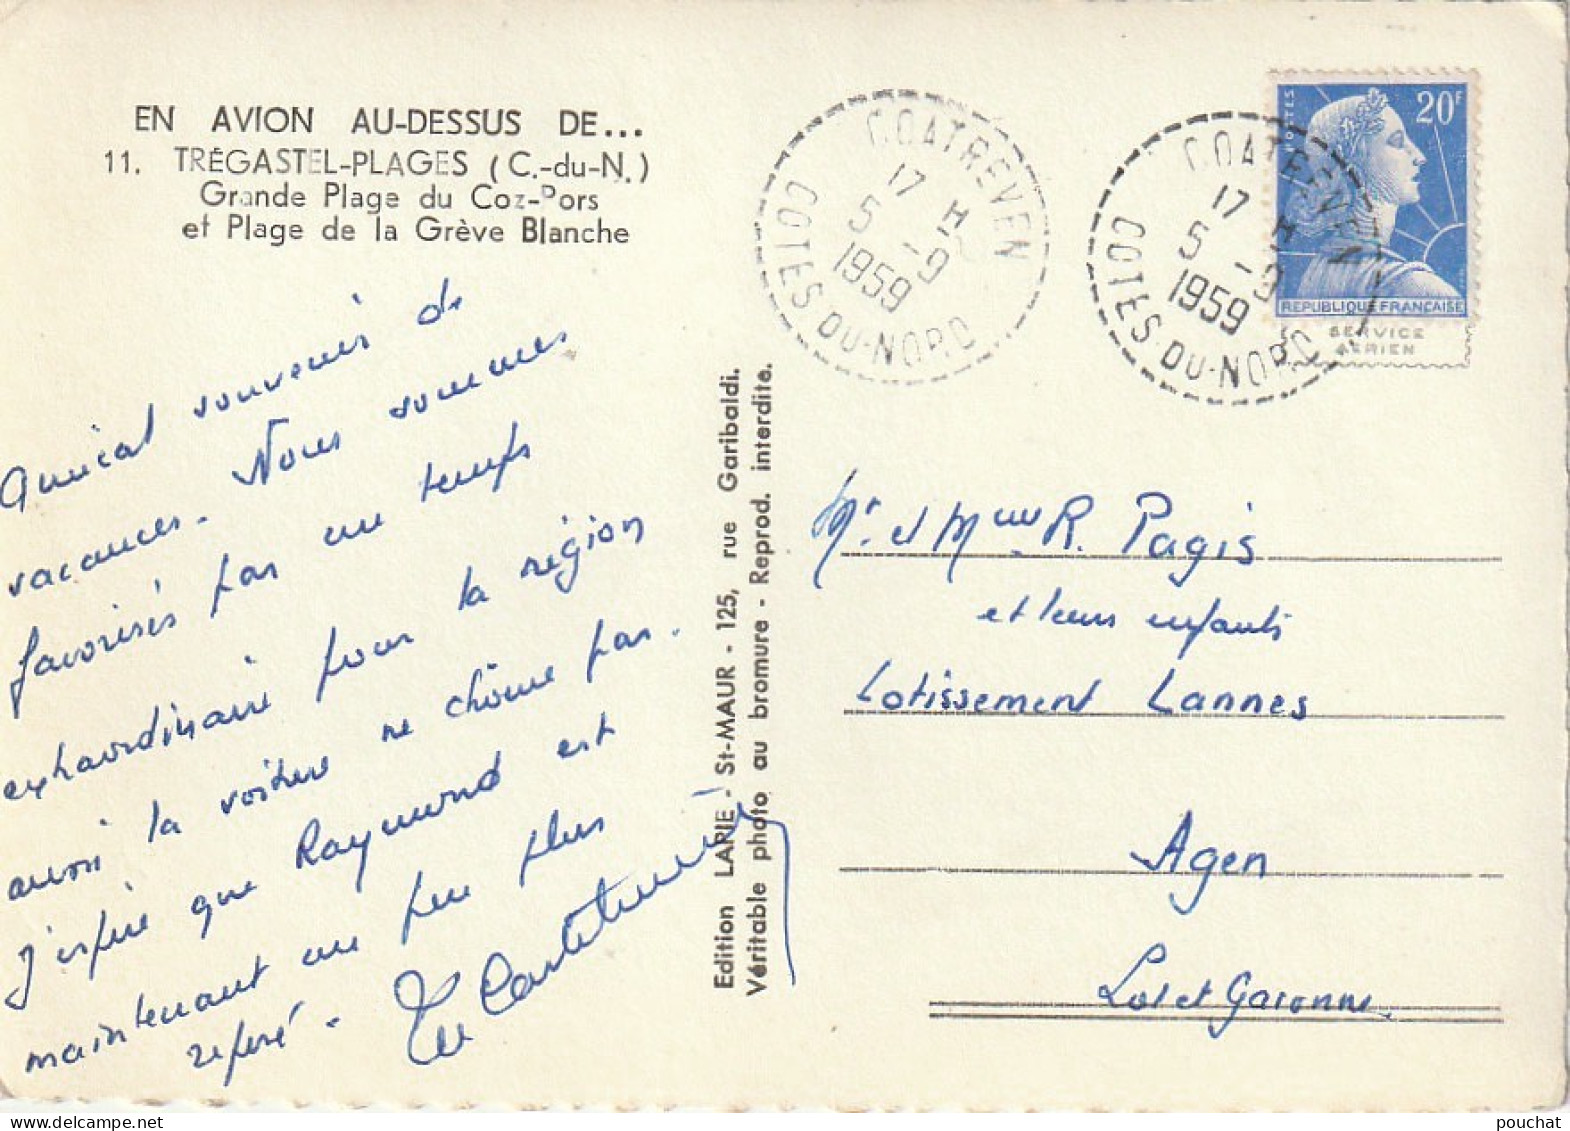 EN AVION AU-DESSUS DE...
11. TRÉGASTEL-PLAGES (C.-du-N.)
Grande Plage du Coz-Pors
et Plage de la Grève Blanche
Amical souvenir de
vacances. Nous sommes
favorisés par un temps
extraordinaire pour la région
aussi la voiture ne chôme pas.
J'espère que Raymond est
maintenant un peu plus
reposé.
Edition LAPIE - St-MAUR - 125, rue Garibaldi.
Véritable photo au bromure - Reprod. interdite.
COATREVEN
17 H
5 - 9
1959
COTES-DU-NORD
COATREVEN
17 H
5 - 9
1959
COTES-DU-NORD
POSTES
20F
REPUBLIQUE FRANCAISE
SERVICE
AERIEN
Mr et Mme R. Pagis
et leurs enfants
Lotissement Lannes
Agen
Lot et Garonne
pouchat